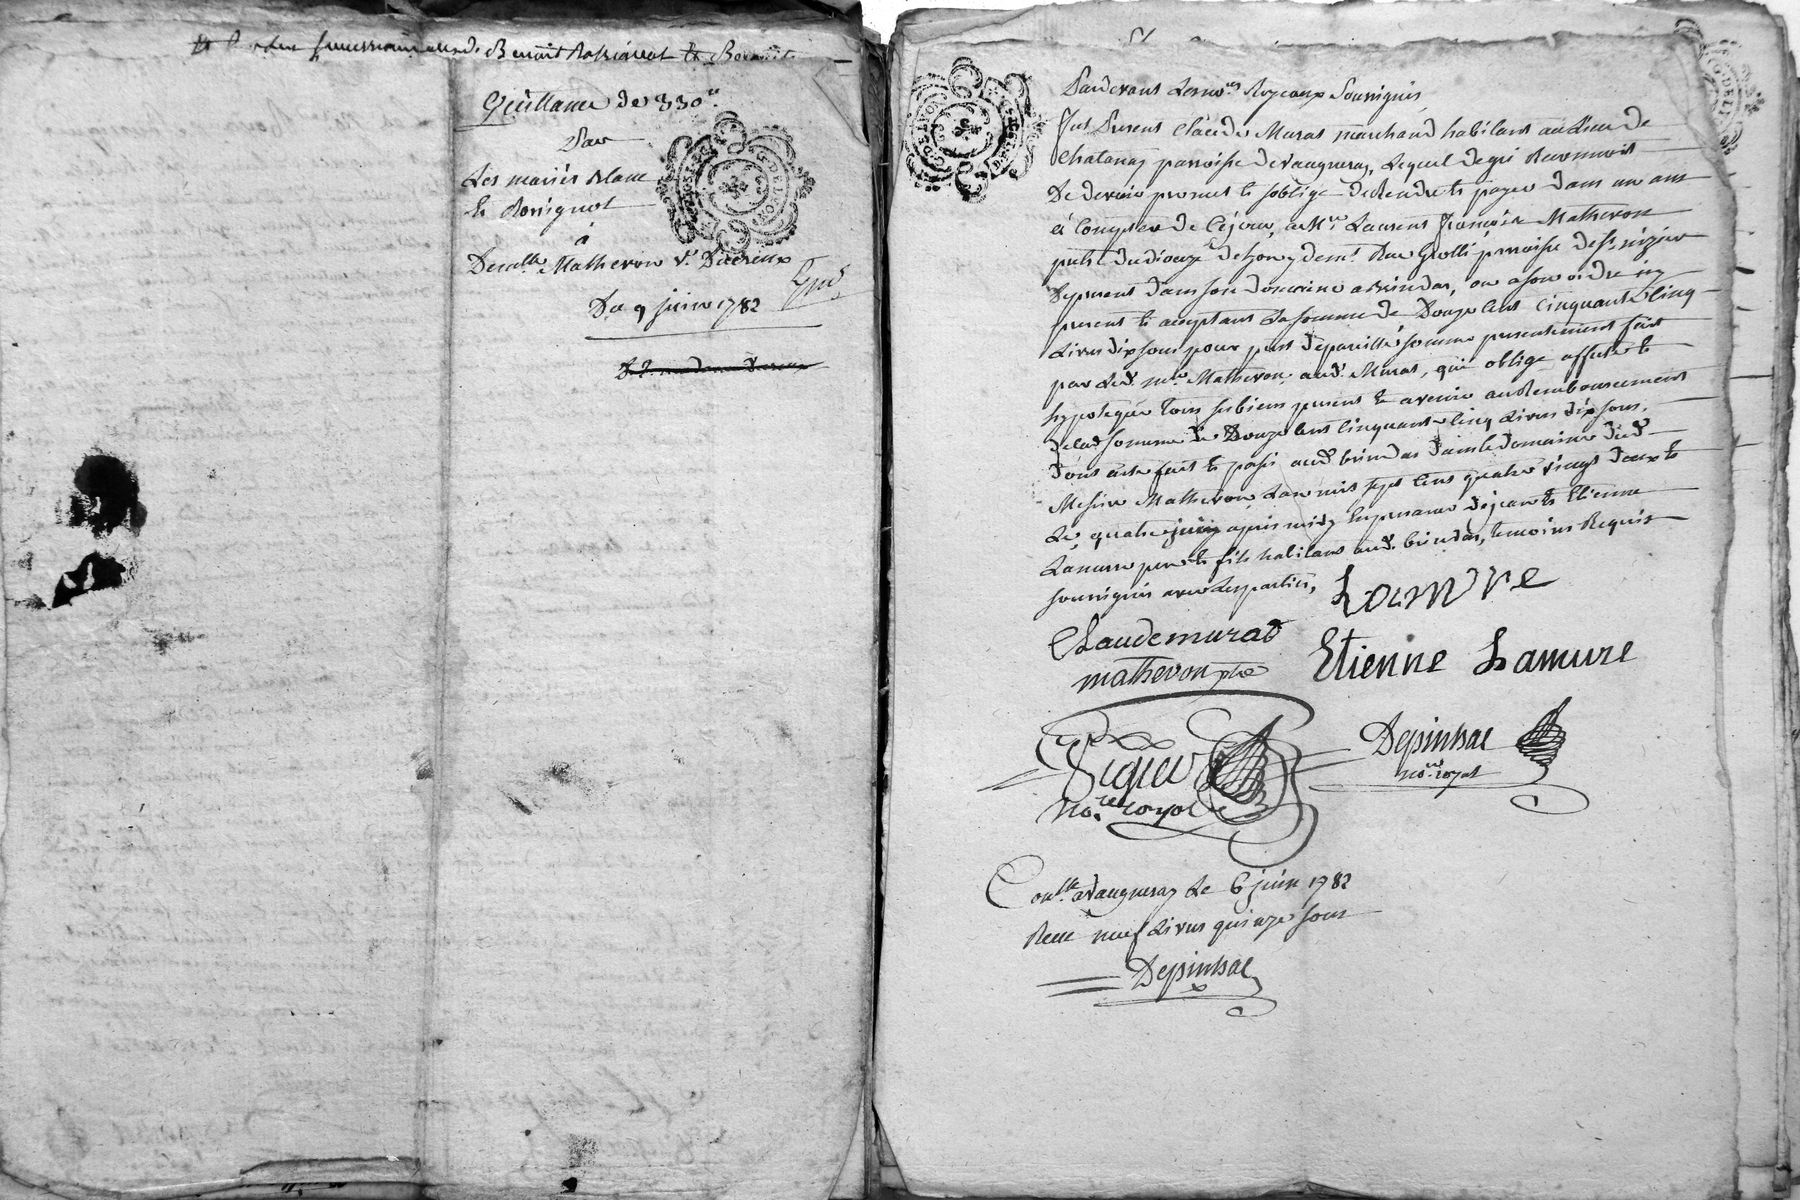 Benoit Rossignol et Benoit
Quittance de 330ᵗᵗ
Par
Les mariés Blanc
et Rossignol
à
Demˡˡᵉ Matheron vᵉ Dacreux
Du 9 juin 1782
Pardevant Les noʳᵉˢ Royeaux Soussignés
fut Present Claude Murat marchand habitant au Lieu de
Chatanay parroisse de vaugneray, Lequel de gré Reconnoit
De devoir promet et s'oblige de Rendre et payer dans un an
à Compter de Ce jour, à Mʳᵉ Laurent François Matheron
prêtre du dioceze de Lyon y demᵗ Rue Grolé parroisse de Sᵗ nizier
De present dans son domaine a Brindas, ou a son ordre icy
present et acceptant La somme de Douze Cent Cinquante Cinq
Livres dix sous pour prest de pareille somme presentement fait
par Led. mʳᵉ Matheron aud. Murat, qui oblige affecte et
hypoteque tous ses biens present et avenir au Remboursement
de lad somme de Douze Cent Cinquante Cinq Livres dix sous,
Dont acte fait et passé aud brindas dans le domaine dud
Messire Matheron L'an mil sept Cent quatre vingt deux et
Le quatre juin après midy En presence de jean et Etienne
Lamure pere et fils habitans aud. brindas, temoins Requis
soussignés avec Les parties,
Lamure
Claude murat
Etienne Lamure
matheron ptre
Depinhac
noʳᵉ royal
noʳᵉ royal
Conˡˡᵉ a vaugneray Le 6 juin 1782
Recu neuf Livres quinze sous
Depinhac